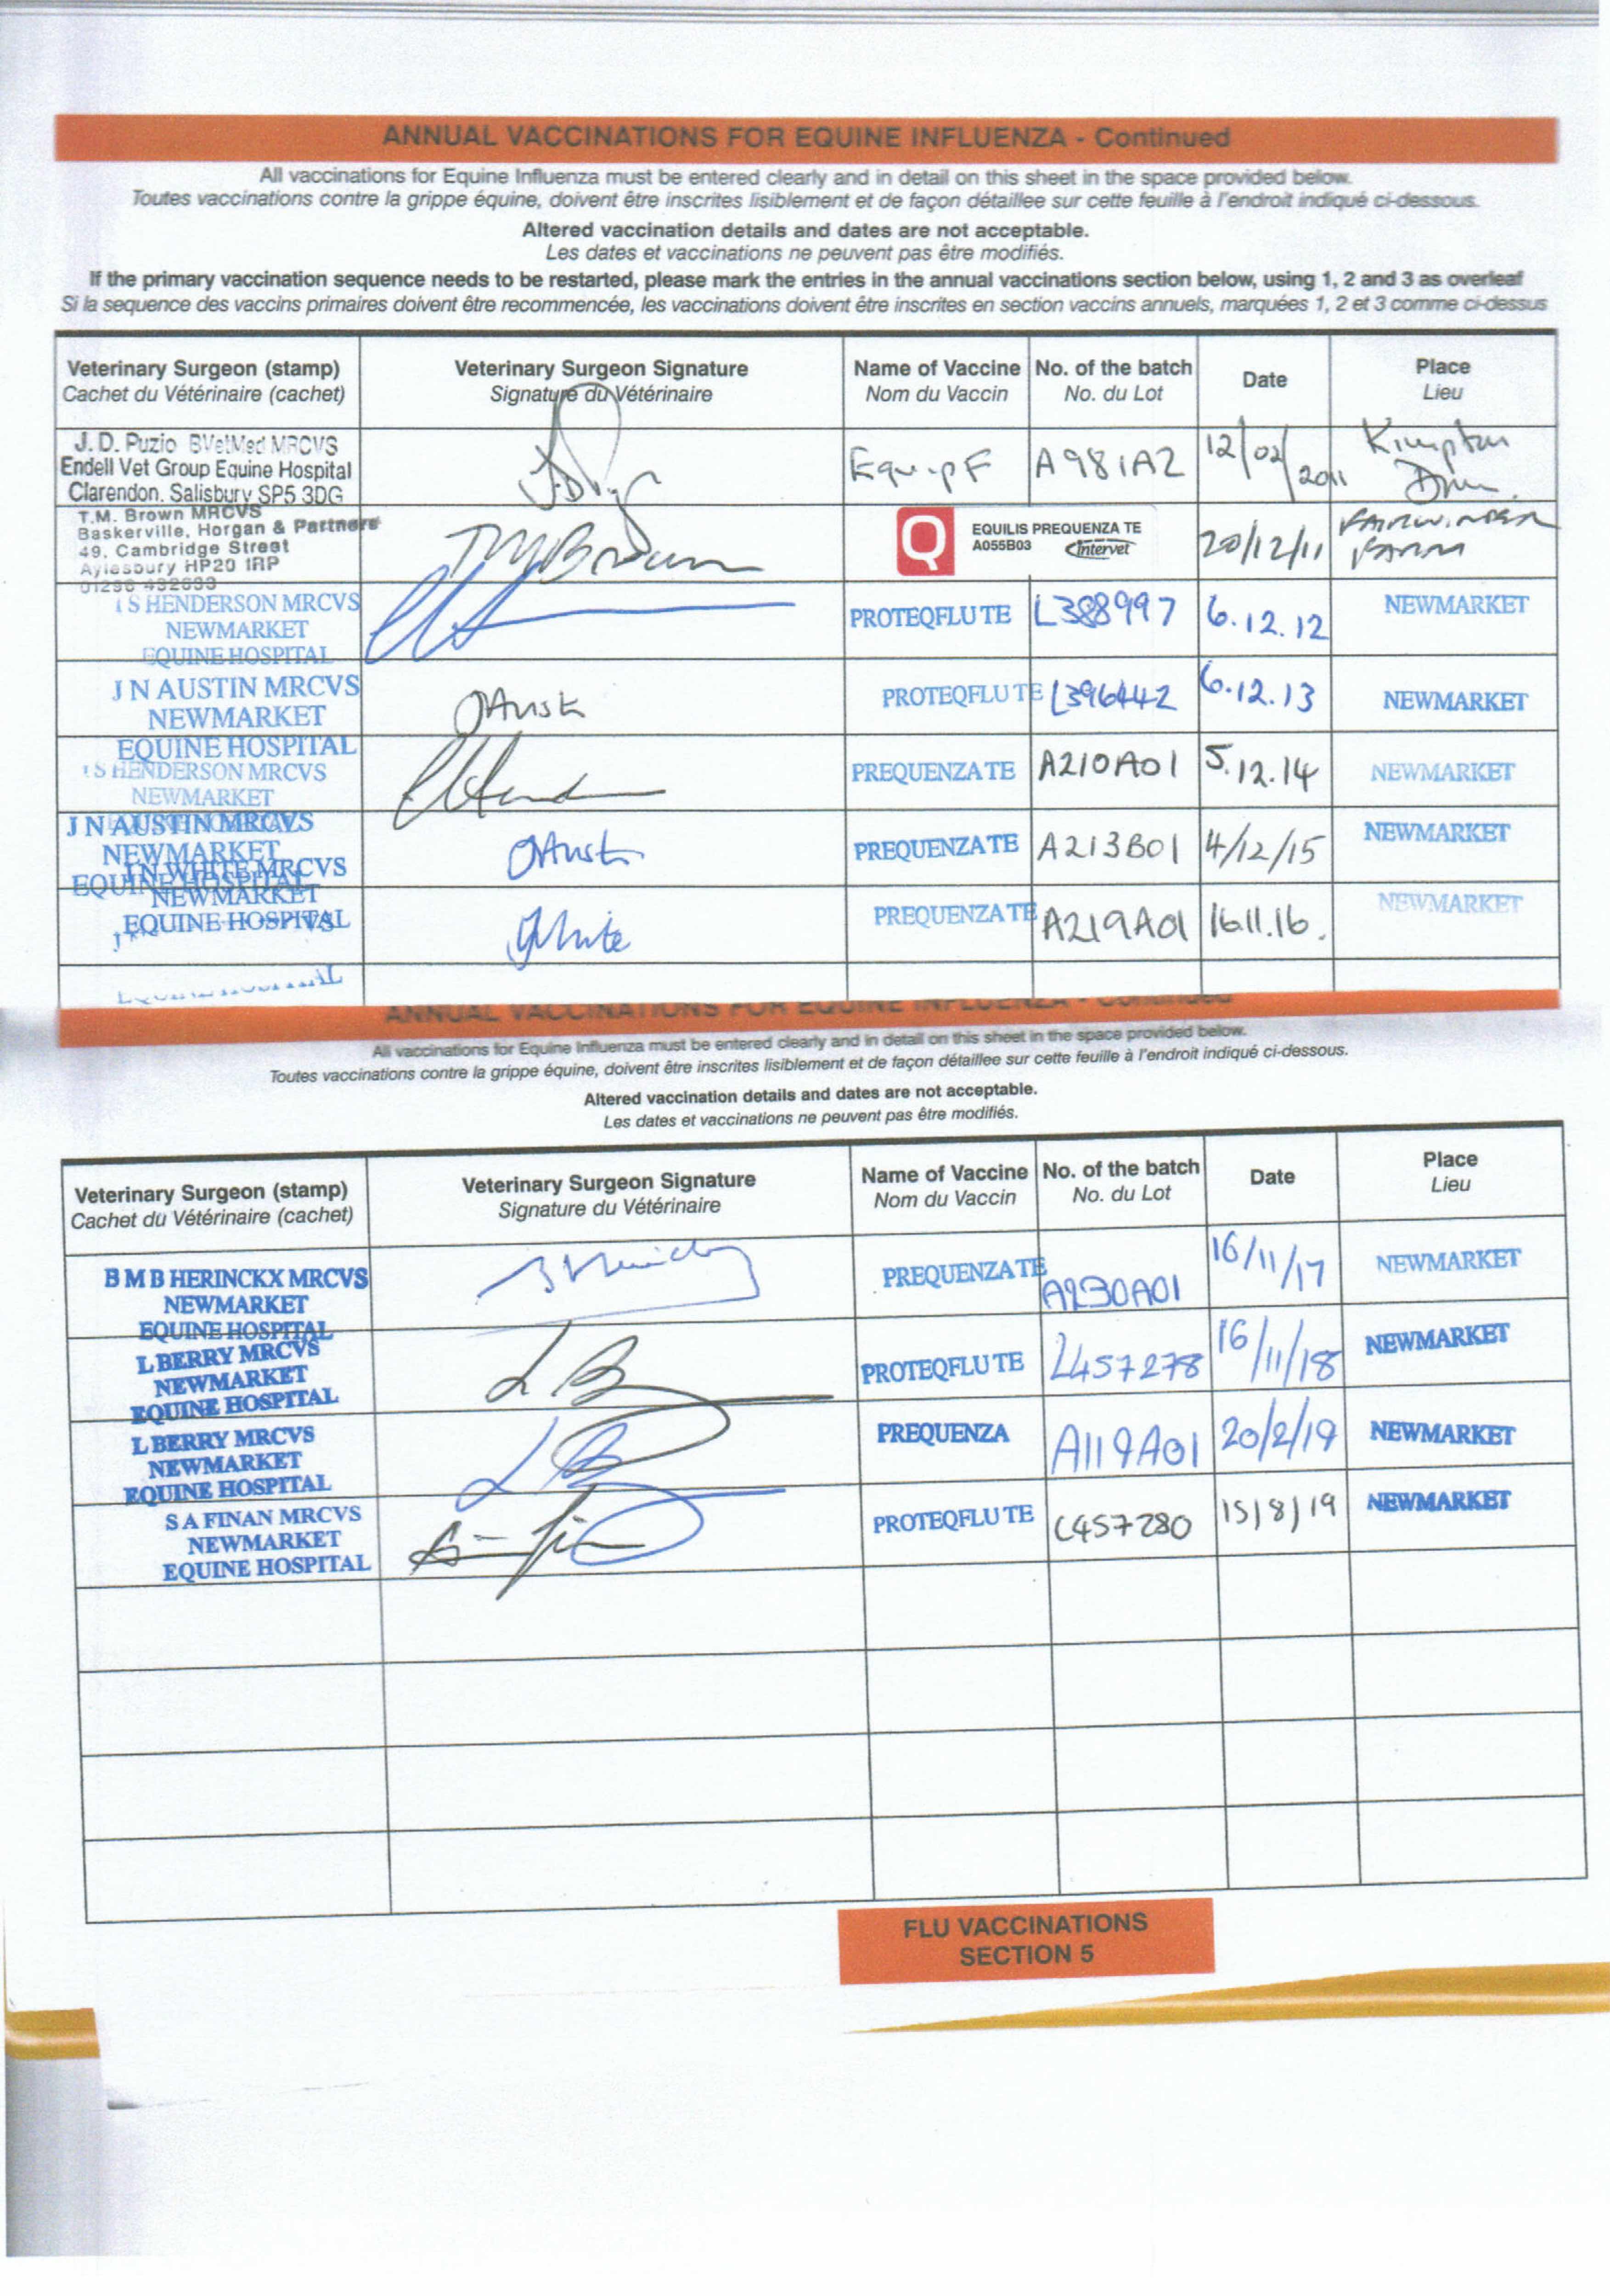 ANNUAL VACCINATIONS FOR EQUINE INFLUENZA - Continued
All vaccinations for Equine Influenza must be entered clearly and in detail on this sheet in the space provided below.
Toutes vaccinations contre la grippe équine, doivent être inscrites lisiblement et de façon détaillee sur cette feuille à l'endroit indiqué ci-dessous.
Altered vaccination details and dates are not acceptable.
Les dates et vaccinations ne peuvent pas être modifiés.
If the primary vaccination sequence needs to be restarted, please mark the entries in the annual vaccinations section below, using 1, 2 and 3 as overleaf
Si la sequence des vaccins primaires doivent être recommencée, les vaccinations doivent être inscrites en section vaccins annuels, marquées 1, 2 et 3 comme ci-dessus
Veterinary Surgeon (stamp) Veterinary Surgeon Signature Name of Vaccine No. of the batch Date Place
Cachet du Vétérinaire (cachet) Signature du Vétérinaire Nom du Vaccin No. du Lot Lieu
J. D. Puzio BVetMed MRCVS
Endell Vet Group Equine Hospital Equip F A981A2 12/02/2011 Kimpton
Clarendon. Salisbury SP5 3DG
T.M. Brown MRCVS
Baskerville, Horgan & Partners TMBrown Q EQUILIS PREQUENZA TE 20/12/11
49, Cambridge Street A055B03 Intervet FARM
Aylesbury HP20 1RP
01296 432633
I S HENDERSON MRCVS PROTEQFLU TE L388997 6.12.12 NEWMARKET
NEWMARKET
EQUINE HOSPITAL
J N AUSTIN MRCVS JAustin PROTEQFLU TE L396442 6.12.13 NEWMARKET
NEWMARKET
EQUINE HOSPITAL
I S HENDERSON MRCVS PREQUENZA TE A210A01 5.12.14 NEWMARKET
NEWMARKET
J N AUSTIN MRCVS JAustin PREQUENZA TE A213B01 4/12/15 NEWMARKET
NEWMARKET
EQUINE HOSPITAL
J N WHITE MRCVS JWhite PREQUENZA TE A219A01 16.11.16. NEWMARKET
NEWMARKET
EQUINE HOSPITAL
ANNUAL VACCINATIONS FOR EQUINE INFLUENZA - Continued
All vaccinations for Equine Influenza must be entered clearly and in detail on this sheet in the space provided below.
Toutes vaccinations contre la grippe équine, doivent être inscrites lisiblement et de façon détaillee sur cette feuille à l'endroit indiqué ci-dessous.
Altered vaccination details and dates are not acceptable.
Les dates et vaccinations ne peuvent pas être modifiés.
Veterinary Surgeon (stamp) Veterinary Surgeon Signature Name of Vaccine No. of the batch Date Place
Cachet du Vétérinaire (cachet) Signature du Vétérinaire Nom du Vaccin No. du Lot Lieu
B M B HERINCKX MRCVS PREQUENZA TE A230A01 16/11/17 NEWMARKET
NEWMARKET
EQUINE HOSPITAL
L BERRY MRCVS LB PROTEQFLU TE L457278 16/11/18 NEWMARKET
NEWMARKET
EQUINE HOSPITAL
L BERRY MRCVS LB PREQUENZA A119A01 20/2/19 NEWMARKET
NEWMARKET
EQUINE HOSPITAL
S A FINAN MRCVS PROTEQFLU TE L457280 15/8/19 NEWMARKET
NEWMARKET
EQUINE HOSPITAL
FLU VACCINATIONS
SECTION 5